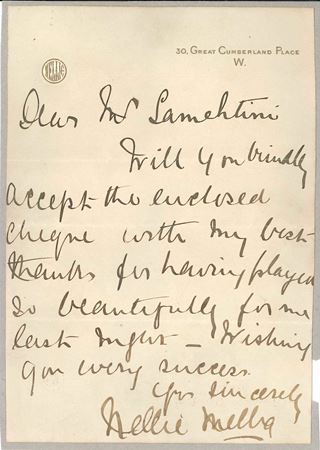 NELLIE
30, GREAT CUMBERLAND PLACE
W.
Dear Mr Samehtini
Will you kindly
accept the enclosed
cheque with my best
thanks for having played
so beautifully for me
last night - Wishing
you every success
Yrs sincerely
Nellie Melba